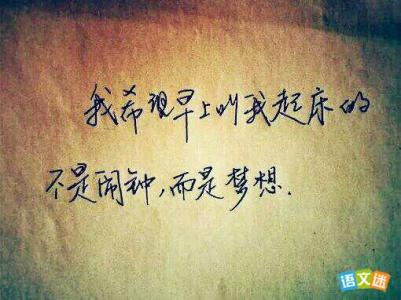 我希望早上叫我起床的
不是闹钟,而是梦想.
语文迷